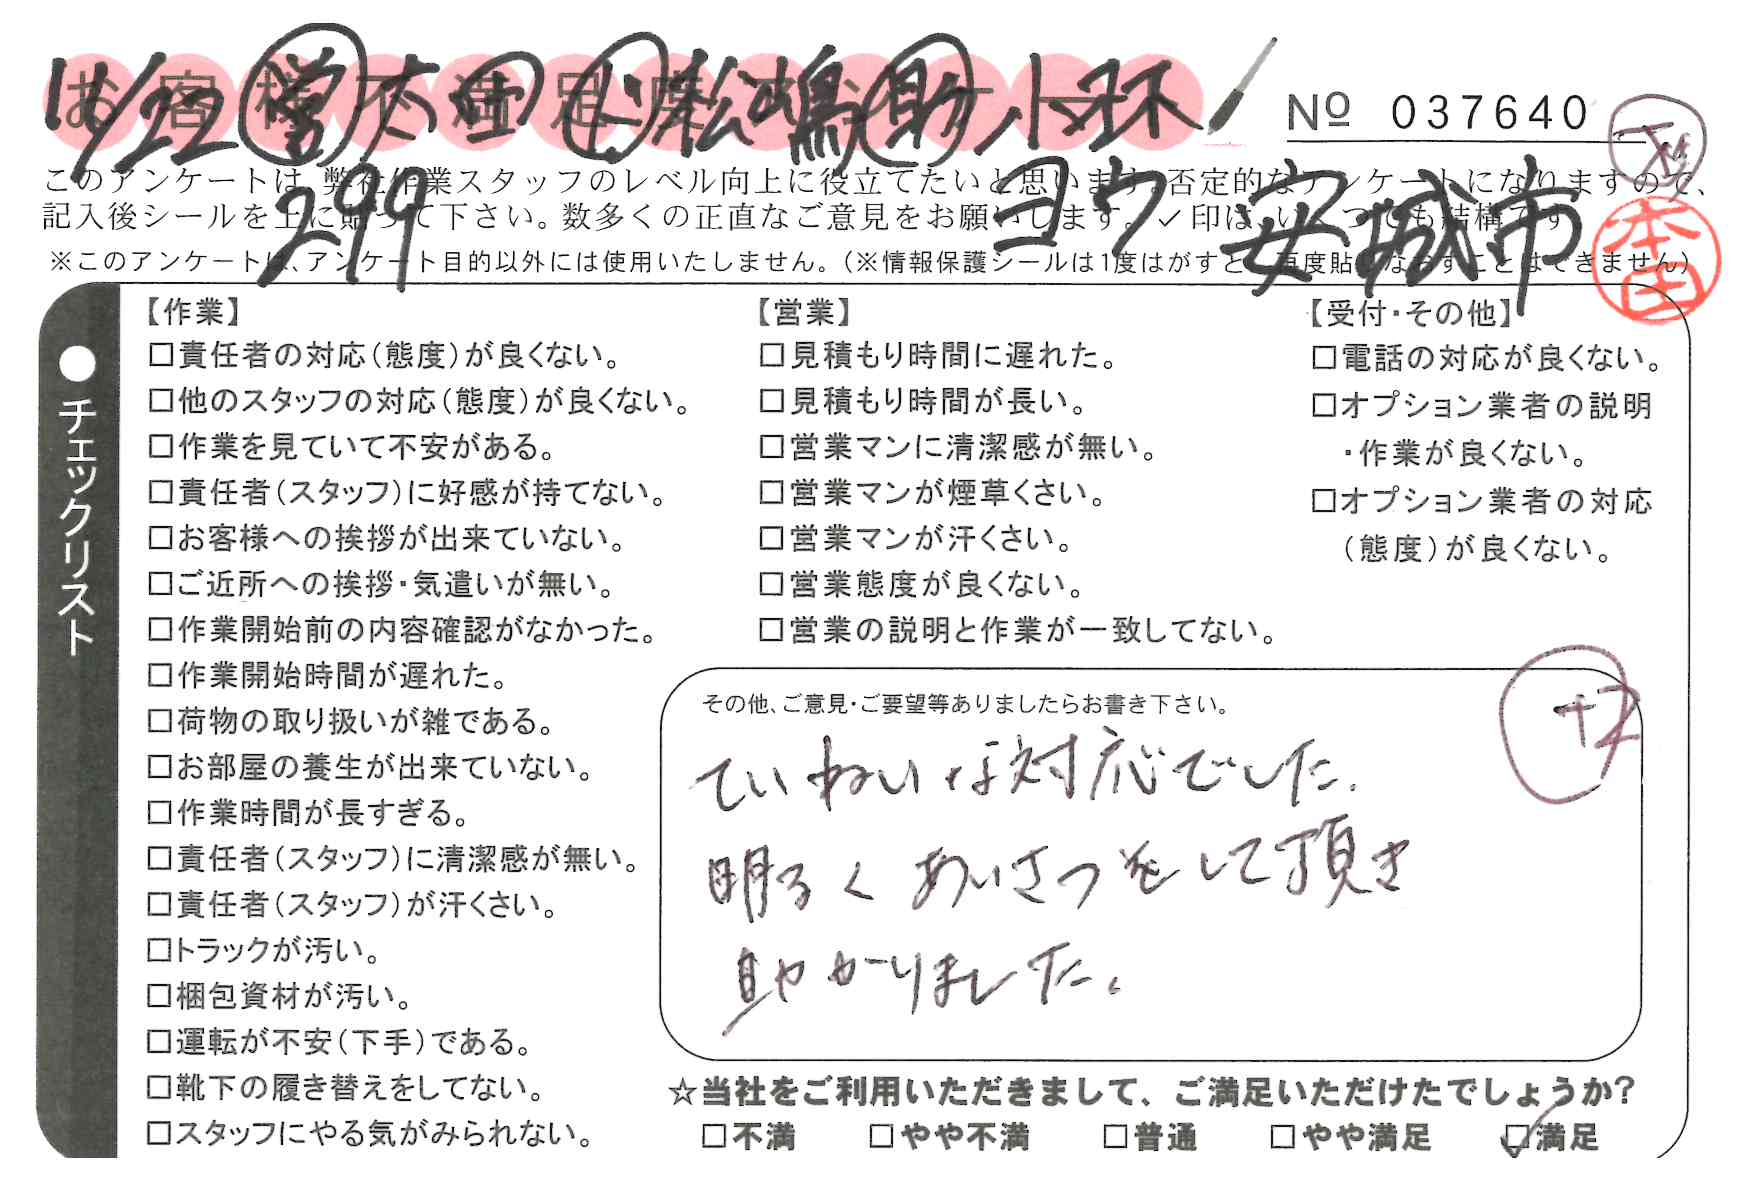 お客様不満足度アンケート
11/22 営 太田 ト 松嶋 助 小环
No 037640
299 ヨウ 安城市
本田
このアンケートは、弊社作業スタッフのレベル向上に役立てたいと思います。否定的なアンケートになりますので、
記入後シールを上に貼って下さい。数多くの正直なご意見をお願いします。✓印は、いくつでも結構です
※このアンケートは、アンケート目的以外には使用いたしません。(※情報保護シールは1度はがすと、再度貼りなおすことはできません)
●チェックリスト
【作業】
□責任者の対応(態度)が良くない。
□他のスタッフの対応(態度)が良くない。
□作業を見ていて不安がある。
□責任者(スタッフ)に好感が持てない。
□お客様への挨拶が出来ていない。
□ご近所への挨拶・気遣いが無い。
□作業開始前の内容確認がなかった。
□作業開始時間が遅れた。
□荷物の取り扱いが雑である。
□お部屋の養生が出来ていない。
□作業時間が長すぎる。
□責任者(スタッフ)に清潔感が無い。
□責任者(スタッフ)が汗くさい。
□トラックが汚い。
□梱包資材が汚い。
□運転が不安(下手)である。
□靴下の履き替えをしてない。
□スタッフにやる気がみられない。
【営業】
□見積もり時間に遅れた。
□見積もり時間が長い。
□営業マンに清潔感が無い。
□営業マンが煙草くさい。
□営業マンが汗くさい。
□営業態度が良くない。
□営業の説明と作業が一致してない。
【受付・その他】
□電話の対応が良くない。
□オプション業者の説明
・作業が良くない。
□オプション業者の対応
(態度)が良くない。
その他、ご意見・ご要望等ありましたらお書き下さい。
+2
ていねいな対応でした.
明るくあいさつをして頂き
助かりました。
☆当社をご利用いただきまして、ご満足いただけたでしょうか?
□不満 □やや不満 □普通 □やや満足 ☑満足